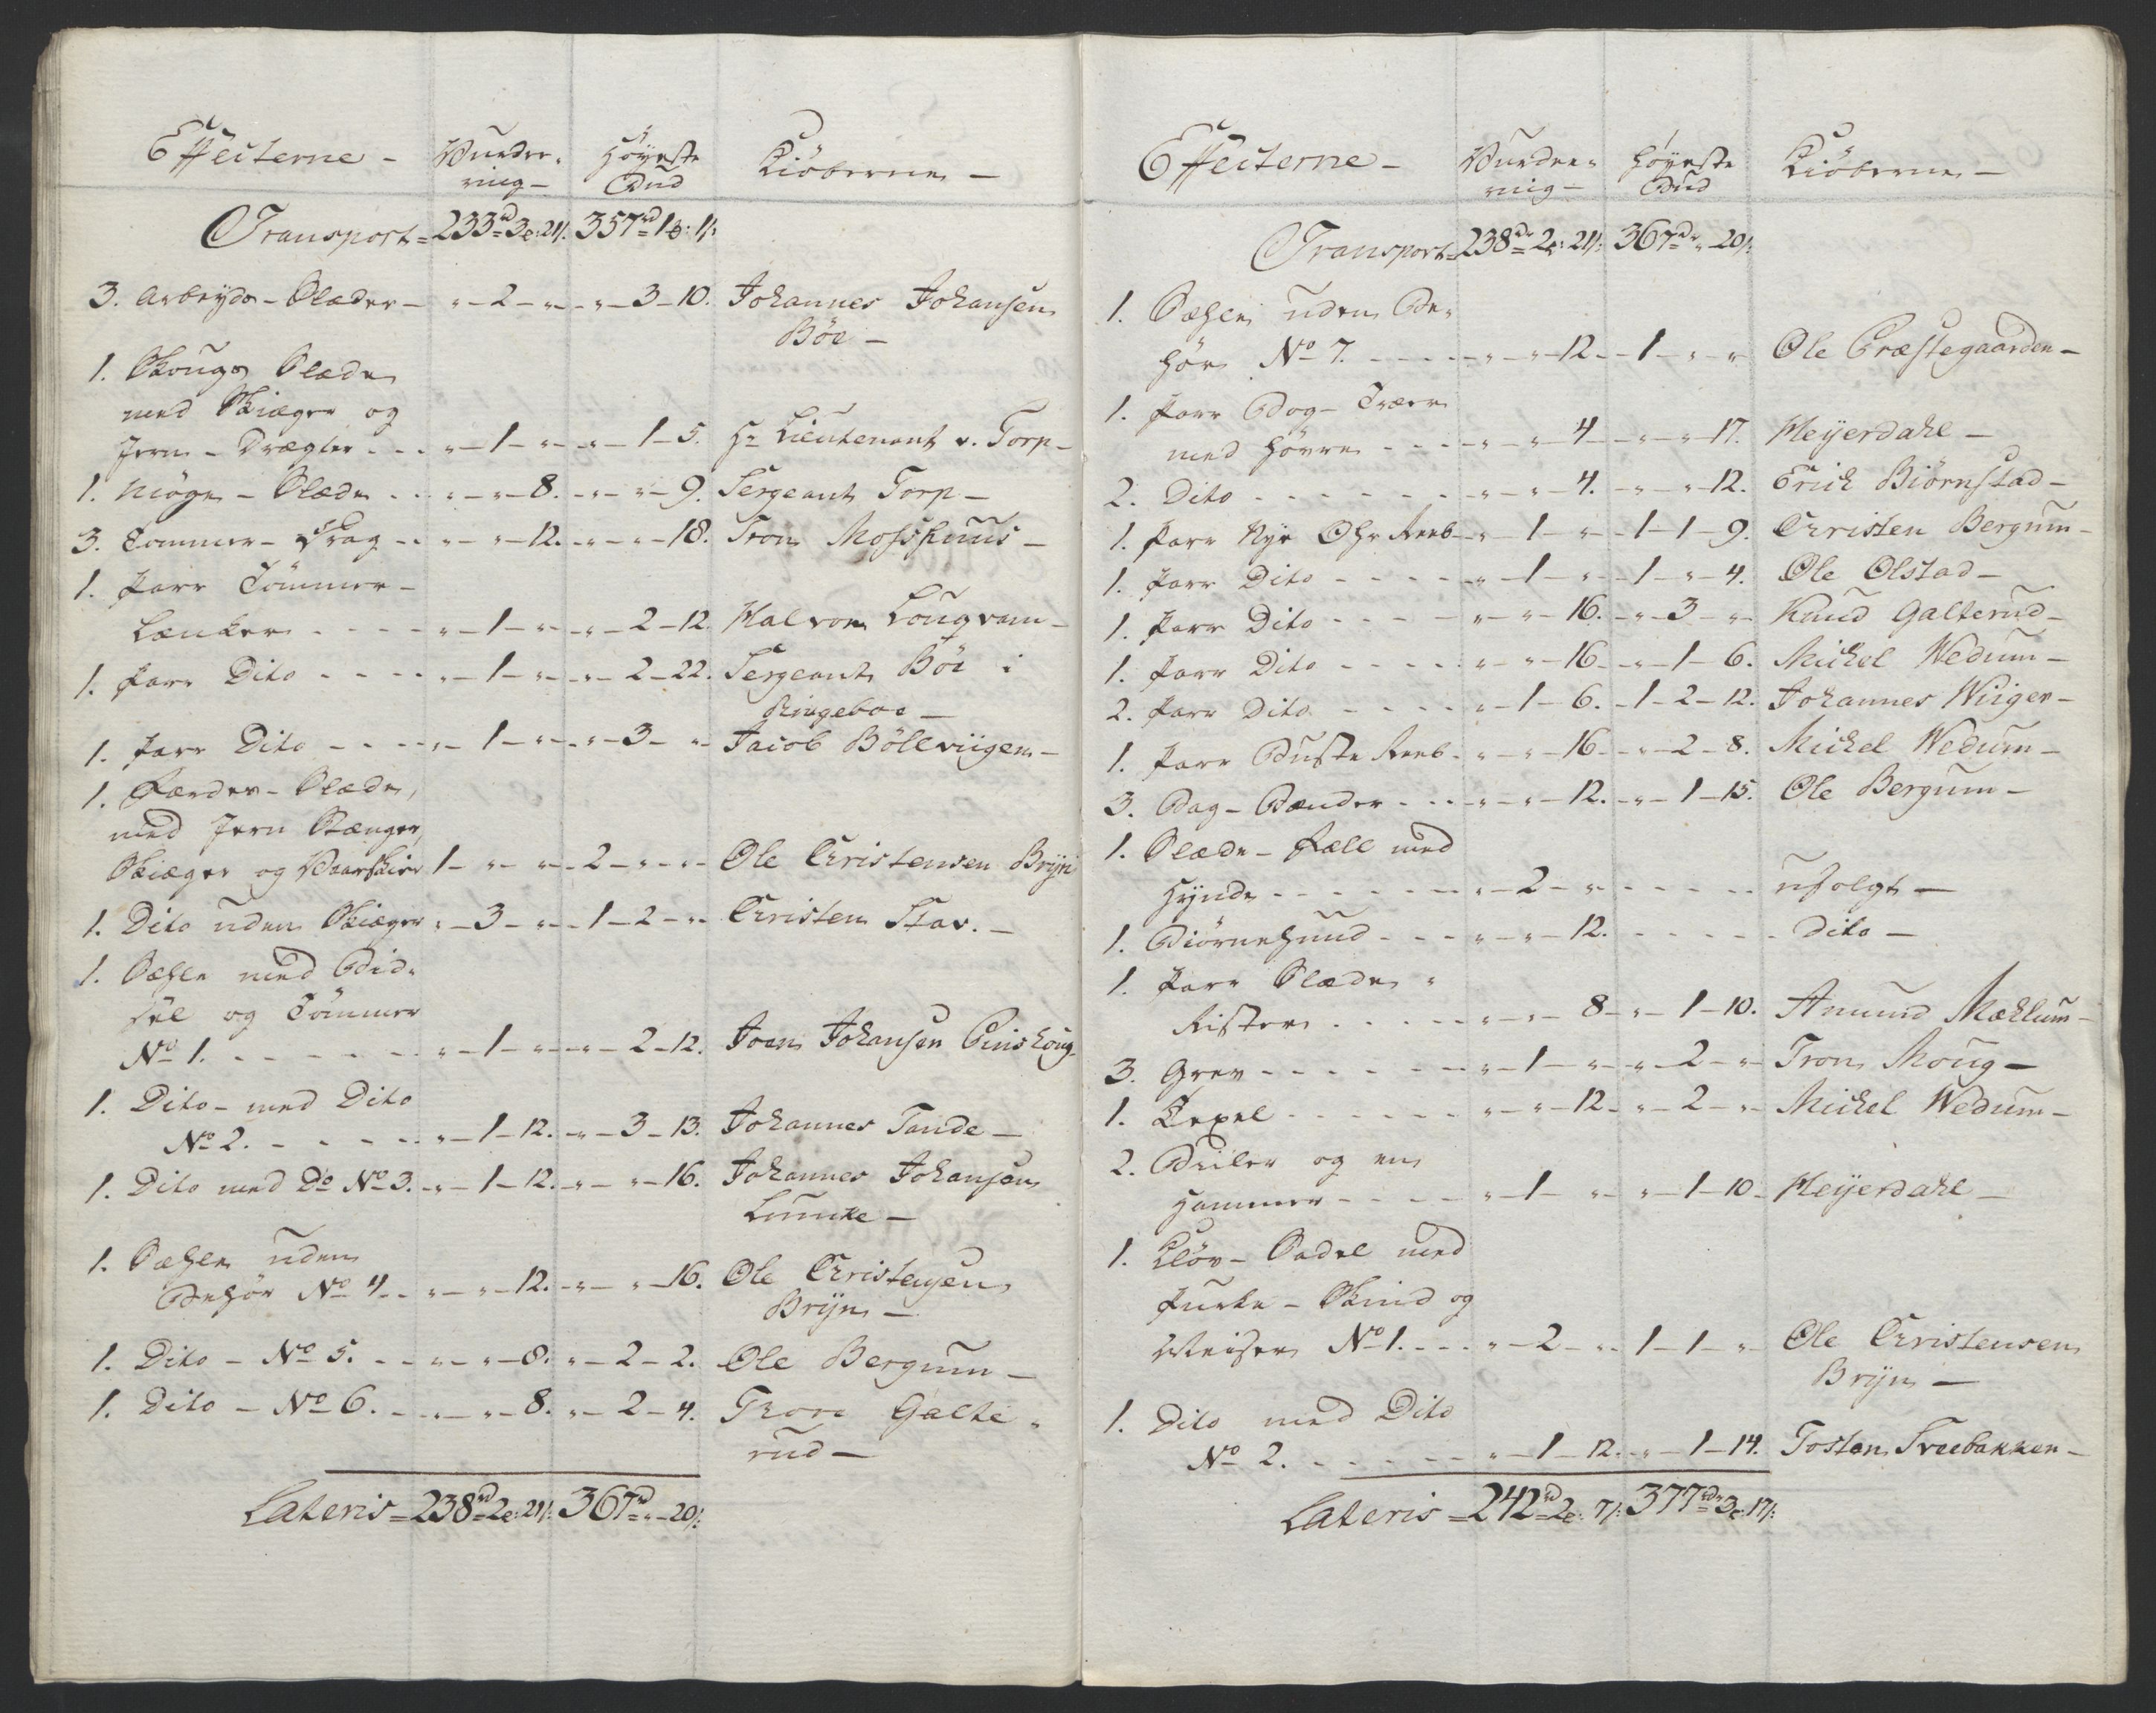 Effecterne - Vurder- Høyeste Kiøberne -
ring - Bud
Transport = 233rd 3o: 21/: 357rd 1o: 1/:
3. Arbeyds - Slæder - " - 2 - " - " - 3 - 10. Johannes Johansen
Böe -
1. Skougs Slæde
med Skiæger og
Jern - Drægter - - - " - 1 - " - " - 1 - 5. Hr Lieutenant v. Torp -
1. Møge - Slæde - - " - " - 8. - " - " - 9. Sergeant Torp -
3. Tømmer - Drag - - " - " - 12. - " - " - 18. Tron Mosshuus -
1. Parr Tömmer -
Lænker - - - - " - 1 - " - " - 2 - 12. Halvor Lougvam -
1. Parr Dito - - - - " - 1 - " - " - 2 - 22. Sergeant Böe i
Ringeboe -
1. Parr Dito - - - - " - 1 - " - " - 3 - " - Jacob Böllviigen -
1. Færder - Slæde,
med Jern Stænger,
Skiæger og Vaarskier 1 - " - " - 2 - " - " - Ole Christensen Bryn
1. Dito uden Skiæger " - 3 - " - 1 - 2 - " - Christen Stav. -
1. Sæhle med Bid-
sel og Tömmer
No 1. - - - - - - " - 1 - " - " - 2 - 12. Joen Johansen Qvishoug
1. Dito - med Dito
No 2. - - - - - " - 1 - 12. - " - 3 - 13. Johannes Tande -
1. Dito med Do No 3. - " - 1 - 12. - " - " - 16. Johannes Johansen
Lunke -
1. Sæhle uden
Behör No 4 - - " - " - 12. - " - " - 16. Ole Christensen
Bryn -
1. Dito - No 5. - - - " - " - 8. " - 2 - 2. Ole Bergum -
1. Dito - No 6. - - " - " - 8. " - 2 - 4. Thore Galte-
rud -
Lateris = 238rd 2o: 21/: 367rd " - 20/:
Effecterne - Vurder- Høyeste Kiøberne -
ring - Bud
Transport = 238rd 2o: 21/: 367rd " 20/:
1. Sæhle uden Be-
hör No 7. - - - - - " - " - 12. - 1 - " - " Ole Præstegaarden -
1. Parr Bog - Træer
med Hövre - - - - " - " - 4 - - " - " - 17. Meyerdahl -
2. Dito - - - - - - - " - " - 4. - " - " - 12. Erich Biörnstad -
1. Parr Nye Ohr Reeb - " - 1 - " - 1 - 1 - 9. Christen Bergum -
1. Parr Dito - - - - - " - 1 - " - 1 - " - 4. Ole Olstad -
1. Parr Dito - - - - - " - " - 16. - " - 3 - " - Knud Galterud -
1. Parr Dito - - - - - " - " - 16 - - " - 1 - 6. Michel Wedum -
2. Parr Dito - - - - - " - 1 - 6. - 1 - 2 - 12. Johannes Wiiger -
1. Parr Buste Reeb - " - " - 16 - - " - 2 - 8. Michel Wedum -
3. Bag - Bænder - - - " - " - 12. - " - 1 - 15. Ole Bergum -
1. Slæde - Fæll med
Hynde - - - - - - - " - 2 - " - - - - - usolgt -
1. Biörnehuud - - - - " - " - 12. - - - - - Dito -
1. Parr Slæde -
Rister - - - - - " - " - 8 - " - 1 - 10. Amund Mæhlum -
3. Grev - - - - - - - " - 1 - " - " - 2 - " - Tron Moug -
1. Texel - - - - - - - " - " - 12. - " - 2 - " - Michel Wedum -
2. Builer og en
Hammer - - - - - " - 1 - " - " - 1 - 10 - Meyerdahl -
1. Klöv - Sadel med
Furke - Skind og
Reiser No 1. - - - " - 2 - " - 1 - 1 - " - Ole Christensen
Bryn -
1. Dito med Dito
No 2. - - - - - " - 1 - 12. " - 1 - 14. Tosten Sveebakken -
Lateris = 242rd 2o: 7/: 377rd 3o: 17/: